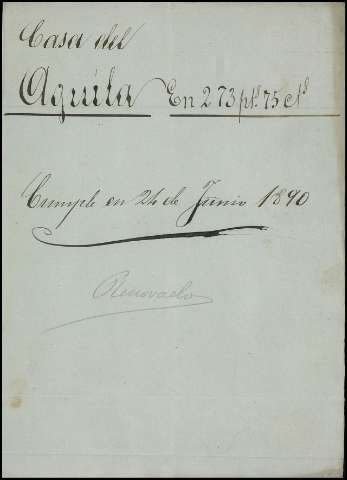 Casa del
Aguila En 273 pts. 75 cts.
Cumple en 24 de Junio 1890
Renovado